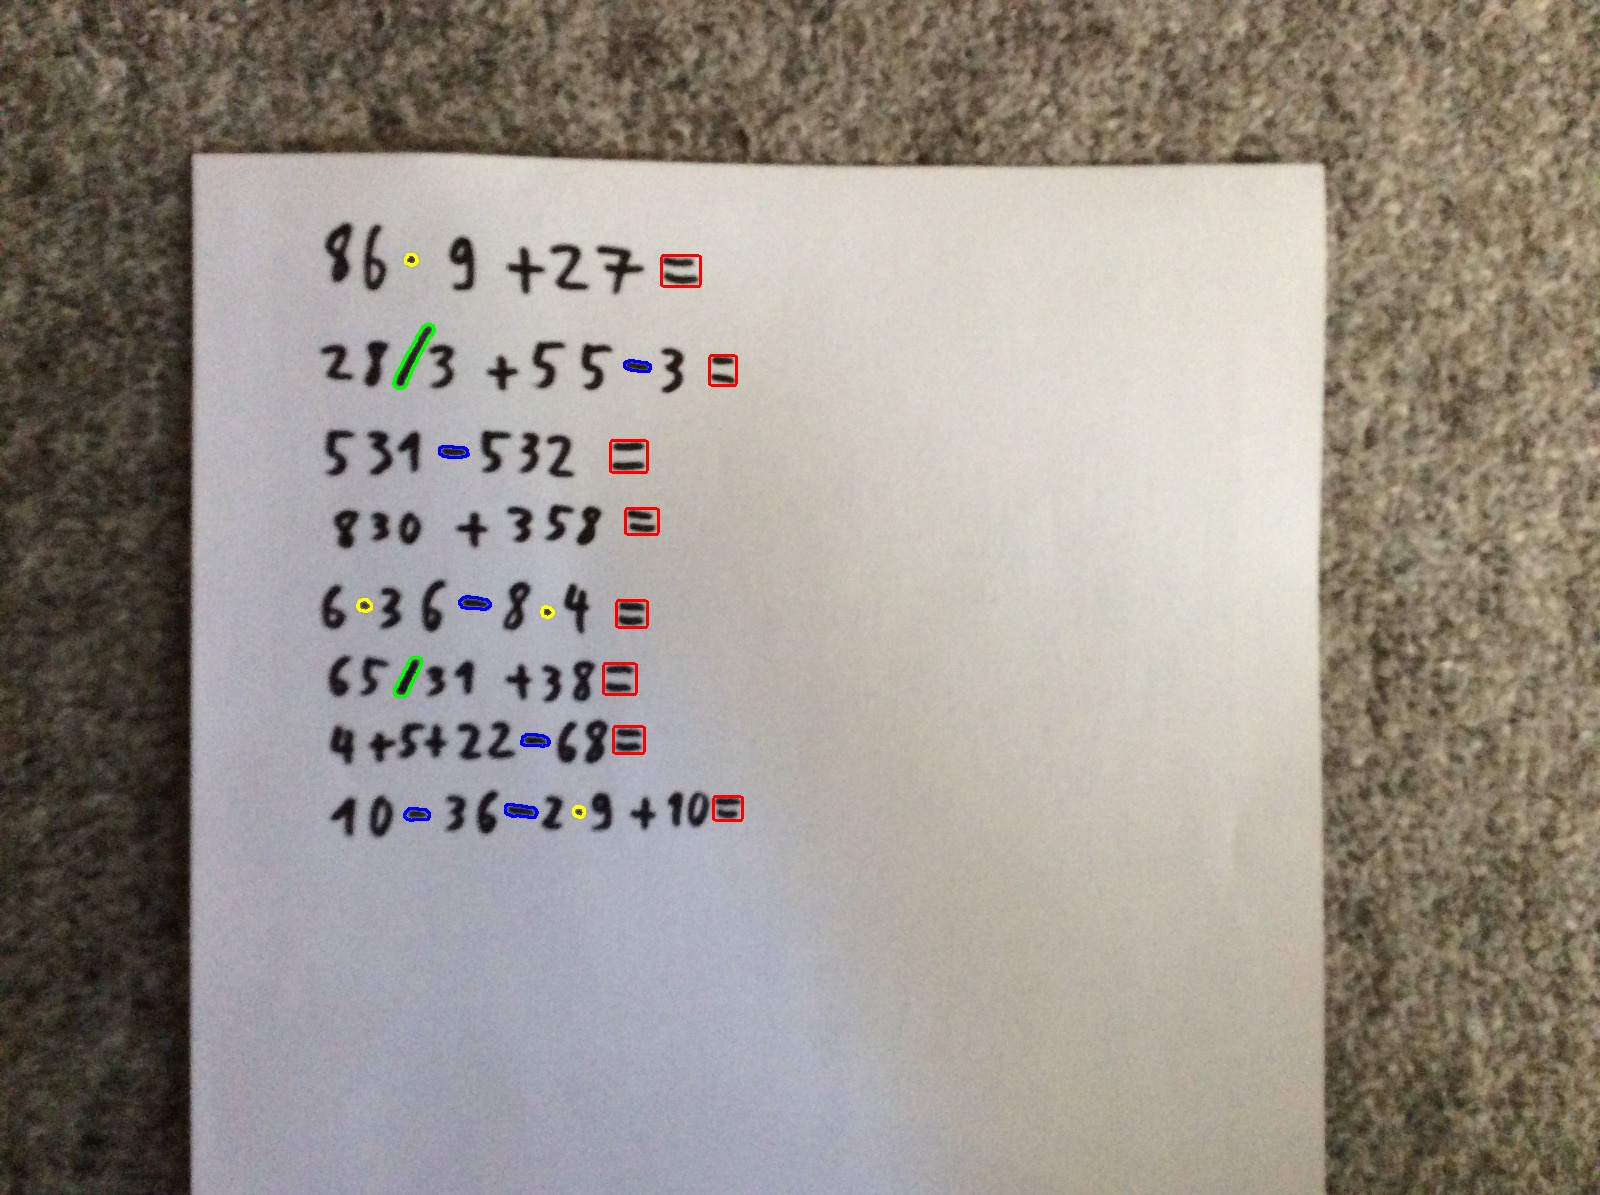 86 · 9 + 27 =
28 / 3 + 55 - 3 =
531 - 532 =
830 + 358 =
6 · 36 - 8 · 4 =
65 / 31 + 38 =
4 + 5 + 22 - 68 =
10 - 36 - 2 · 9 + 10 =